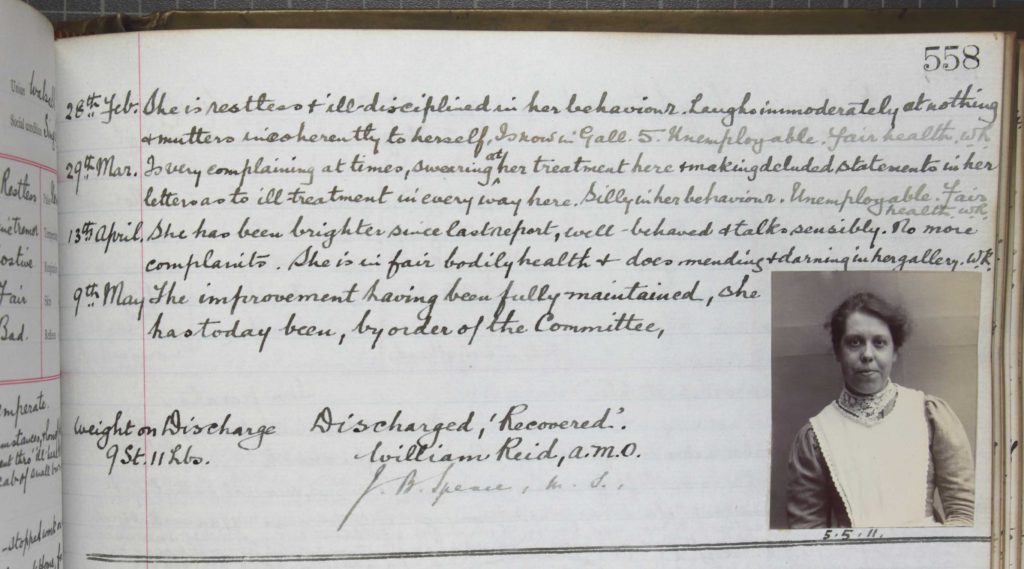 558
Union Walsall
Social condition Single
Restless
Tremor
Costive
Fair
Skin
Bad.
Reflexes
28th Feb. She is restless & ill-disciplined in her behaviour. Laughs immoderately at nothing
& mutters incoherently to herself. Is now in Gall. 5. Unemployable. Fair health. WR.
29th Mar. Is very complaining at times, swearing at her treatment here & making deluded statements in her
letters as to ill treatment in every way here. Silly in her behaviour. Unemployable. Fair
health. WR.
13th April. She has been brighter since last report, well-behaved & talks sensibly. No more
complaints. She is in fair bodily health & does mending & darning in her gallery. WR.
9th May The improvement having been fully maintained, she
has today been, by order of the Committee,
Weight on Discharge Discharged, 'Recovered'.
9 St. 11 lbs. William Reid, A.M.O.
J. B. Spence, M. S.,
5.5.11.